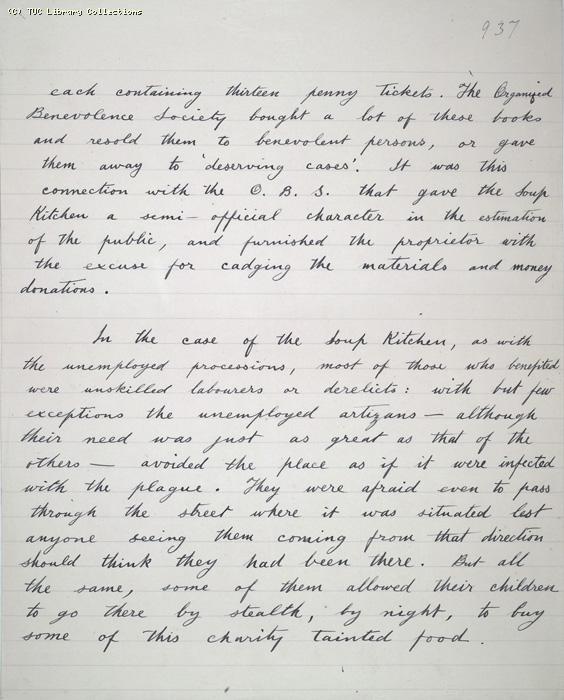 (C) TUC Library Collections
937
each containing thirteen penny tickets. The Organized
Benevolence Society bought a lot of these books
and resold them to benevolent persons, or gave
them away to 'deserving cases'. It was this
connection with the O. B. S. that gave the Soup
Kitchen a semi-official character in the estimation
of the public, and furnished the proprietor with
the excuse for cadging the materials and money
donations.
In the case of the Soup Kitchen, as with
the unemployed processions, most of those who benefited
were unskilled labourers or derelicts: with but few
exceptions the unemployed artizans — although
their need was just as great as that of the
others — avoided the place as if it were infected
with the plague. They were afraid even to pass
through the street where it was situated lest
anyone seeing them coming from that direction
should think they had been there. But all
the same, some of them allowed their children
to go there by stealth, by night, to buy
some of this charity tainted food.